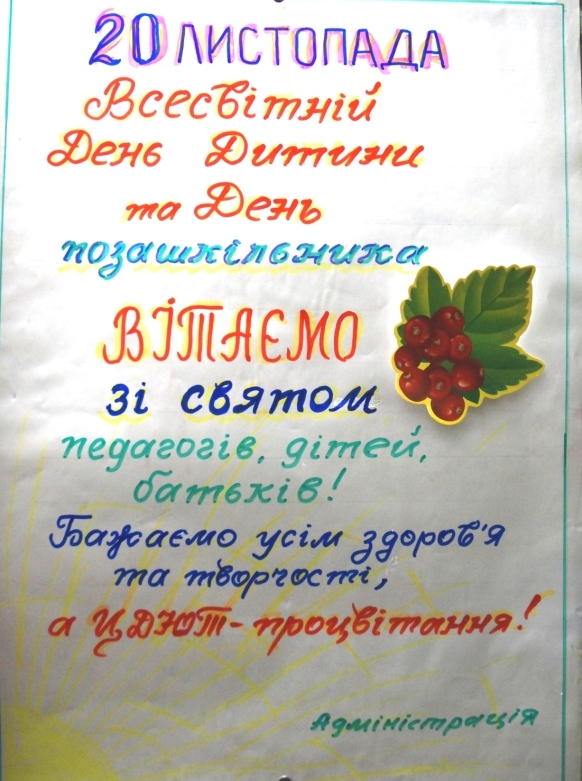 20 ЛИСТОПАДА
Всесвітній
День Дитини
та День
позашкільника
ВІТАЄМО
зі святом
педагогів, дітей,
батьків!
Бажаємо усім здоров'я
та творчості,
а ЦДЮТ - процвітання!
Адміністрація